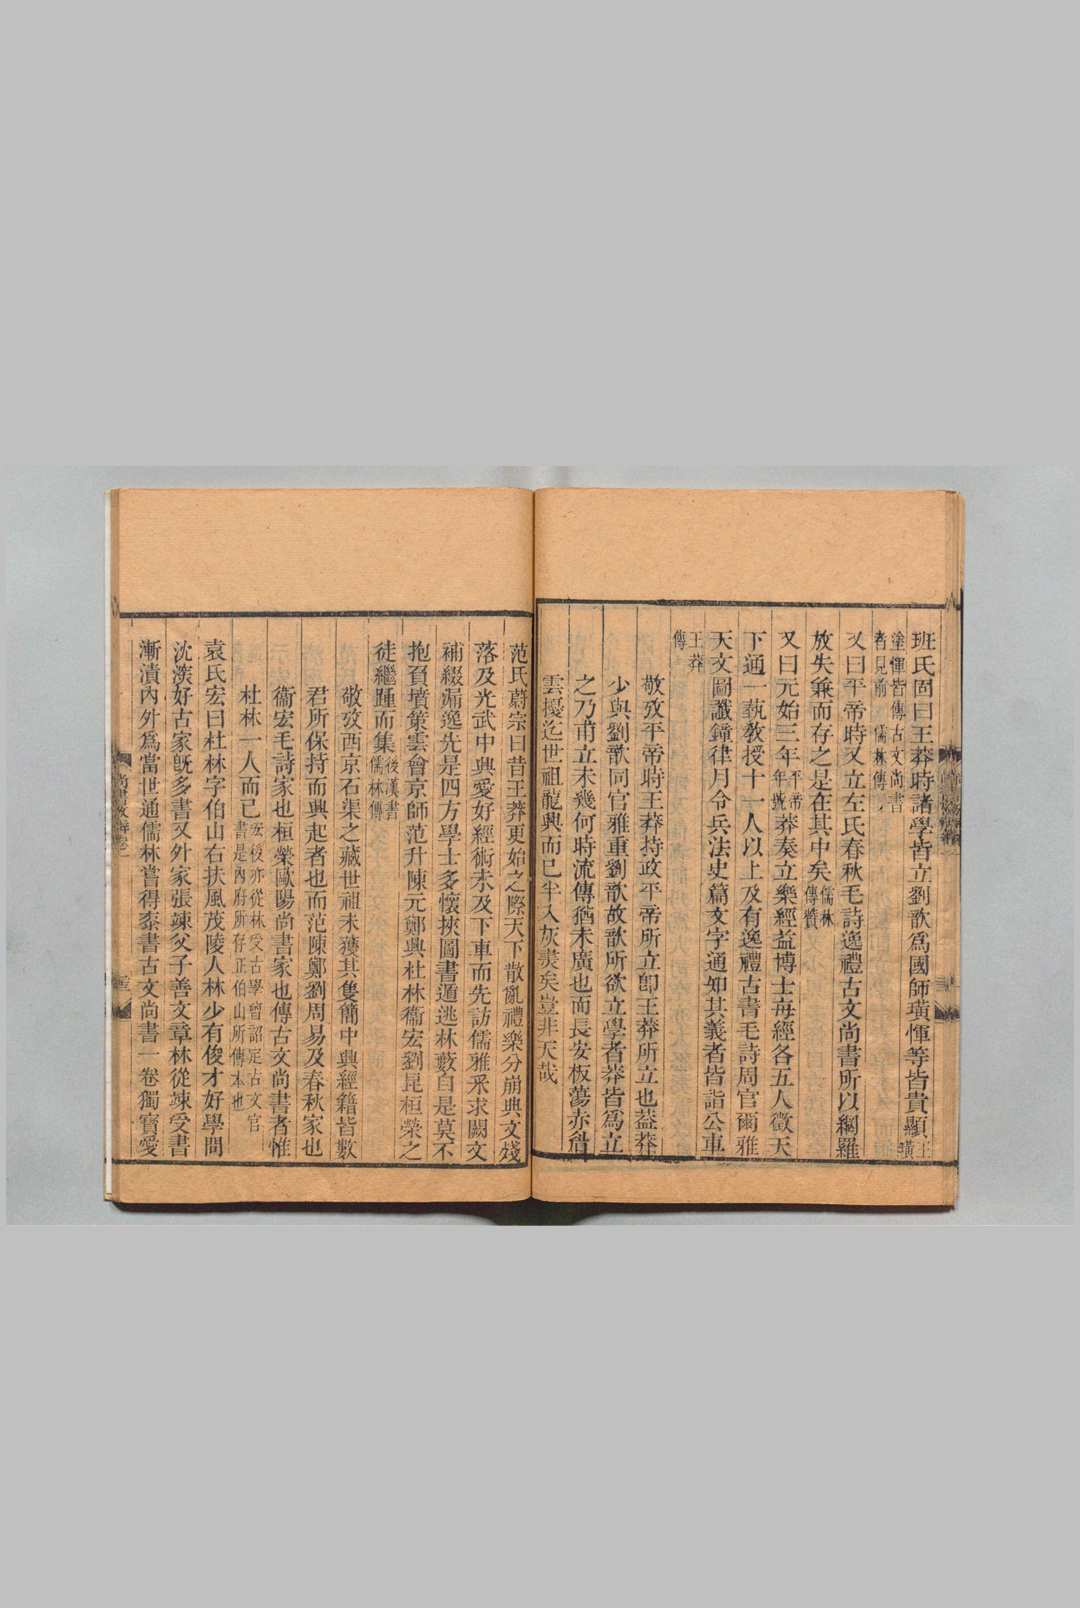 班氏固曰王莽時諸學皆立劉歆爲國師璜惲等皆貴顯王璜
塗惲皆傳古文尚書
者見前 儒林傳
又曰平帝時又立左氏春秋毛詩逸禮古文尚書所以網羅
放失兼而存之是在其中矣儒林傳贊
又曰元始三年平帝年號莽奏立樂經益博士每經各五人徵天
下通一執敎授十一人以上及有逸禮古書毛詩周官爾雅
天文圖讖鐘律月令兵法史篇文字通知其義者皆詣公車
王莽傳
敬攷平帝時王莽持政平帝所立卽王莽所立也葢莽
少與劉歆同官雅重劉歆故歆所欲立學者莽皆爲立
之乃甫立未幾何時流傳猶未廣也而長安板蕩赤眉
雲擾迄世祖龍興而已半入灰燹矣豈非天哉
范氏蔚宗曰昔王莽更始之際天下散亂禮樂分崩典文殘
落及光武中興愛好經術未及下車而先訪儒雅采求闕文
補綴漏逸先是四方學士多懷挾圖書遁逃林藪自是莫不
抱負墳策雲會京師范升陳元鄭興杜林衞宏劉昆桓榮之
徒繼踵而集後漢書儒林傳
敬攷西京石渠之藏世祖未獲其隻簡中興經籍皆數
君所保持而興起者也而范陳鄭劉周易及春秋家也
衞宏毛詩家也桓榮歐陽尚書家也傳古文尚書者惟
杜林一人而已宏後亦從林受古學曾詔定古文官書是內府所存正伯山所傳本也
袁氏宏曰杜林字伯山右扶風茂陵人林少有俊才好學問
沈深好古家旣多書又外家張竦父子善文章林從竦受書
漸漬內外爲當世通儒林嘗得桼書古文尚書一卷獨寶愛